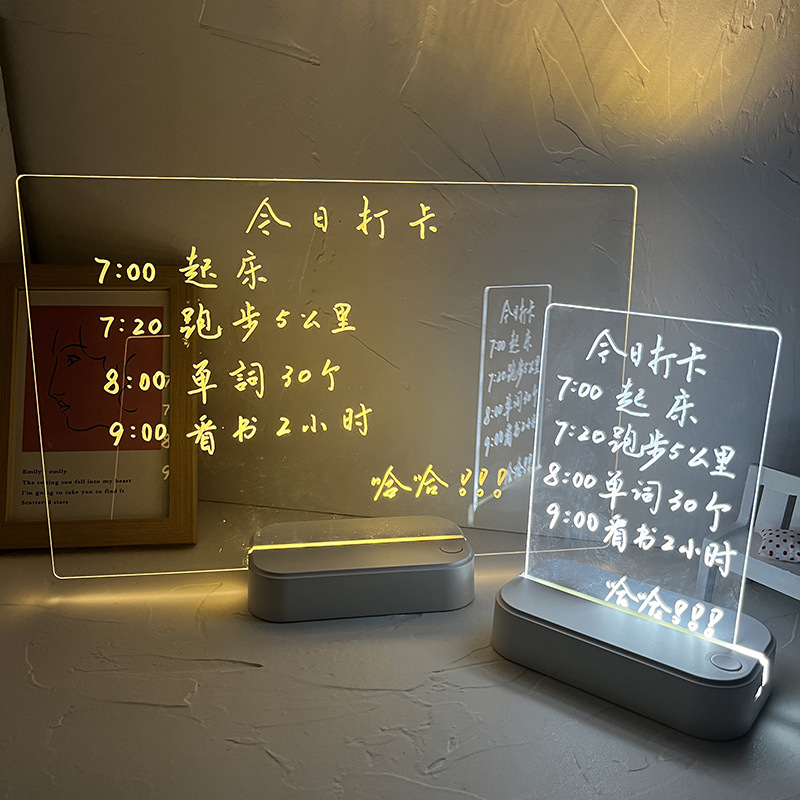 今日打卡
7:00 起床
7:20 跑步5公里
8:00 单詞30个
9:00 看书2小时
哈哈!!!
今日打卡
7:00 起床
7:20跑步5公里
8:00单词30个
9:00看书2小时
哈哈!!!
今日打卡
7:00 起床
7:20跑步5公里
8:00单词30个
9:00看书2小时
哈哈!!!
Emily emily
The setting sun fell into my heart
I'm going to take you to find it
Scattered stars